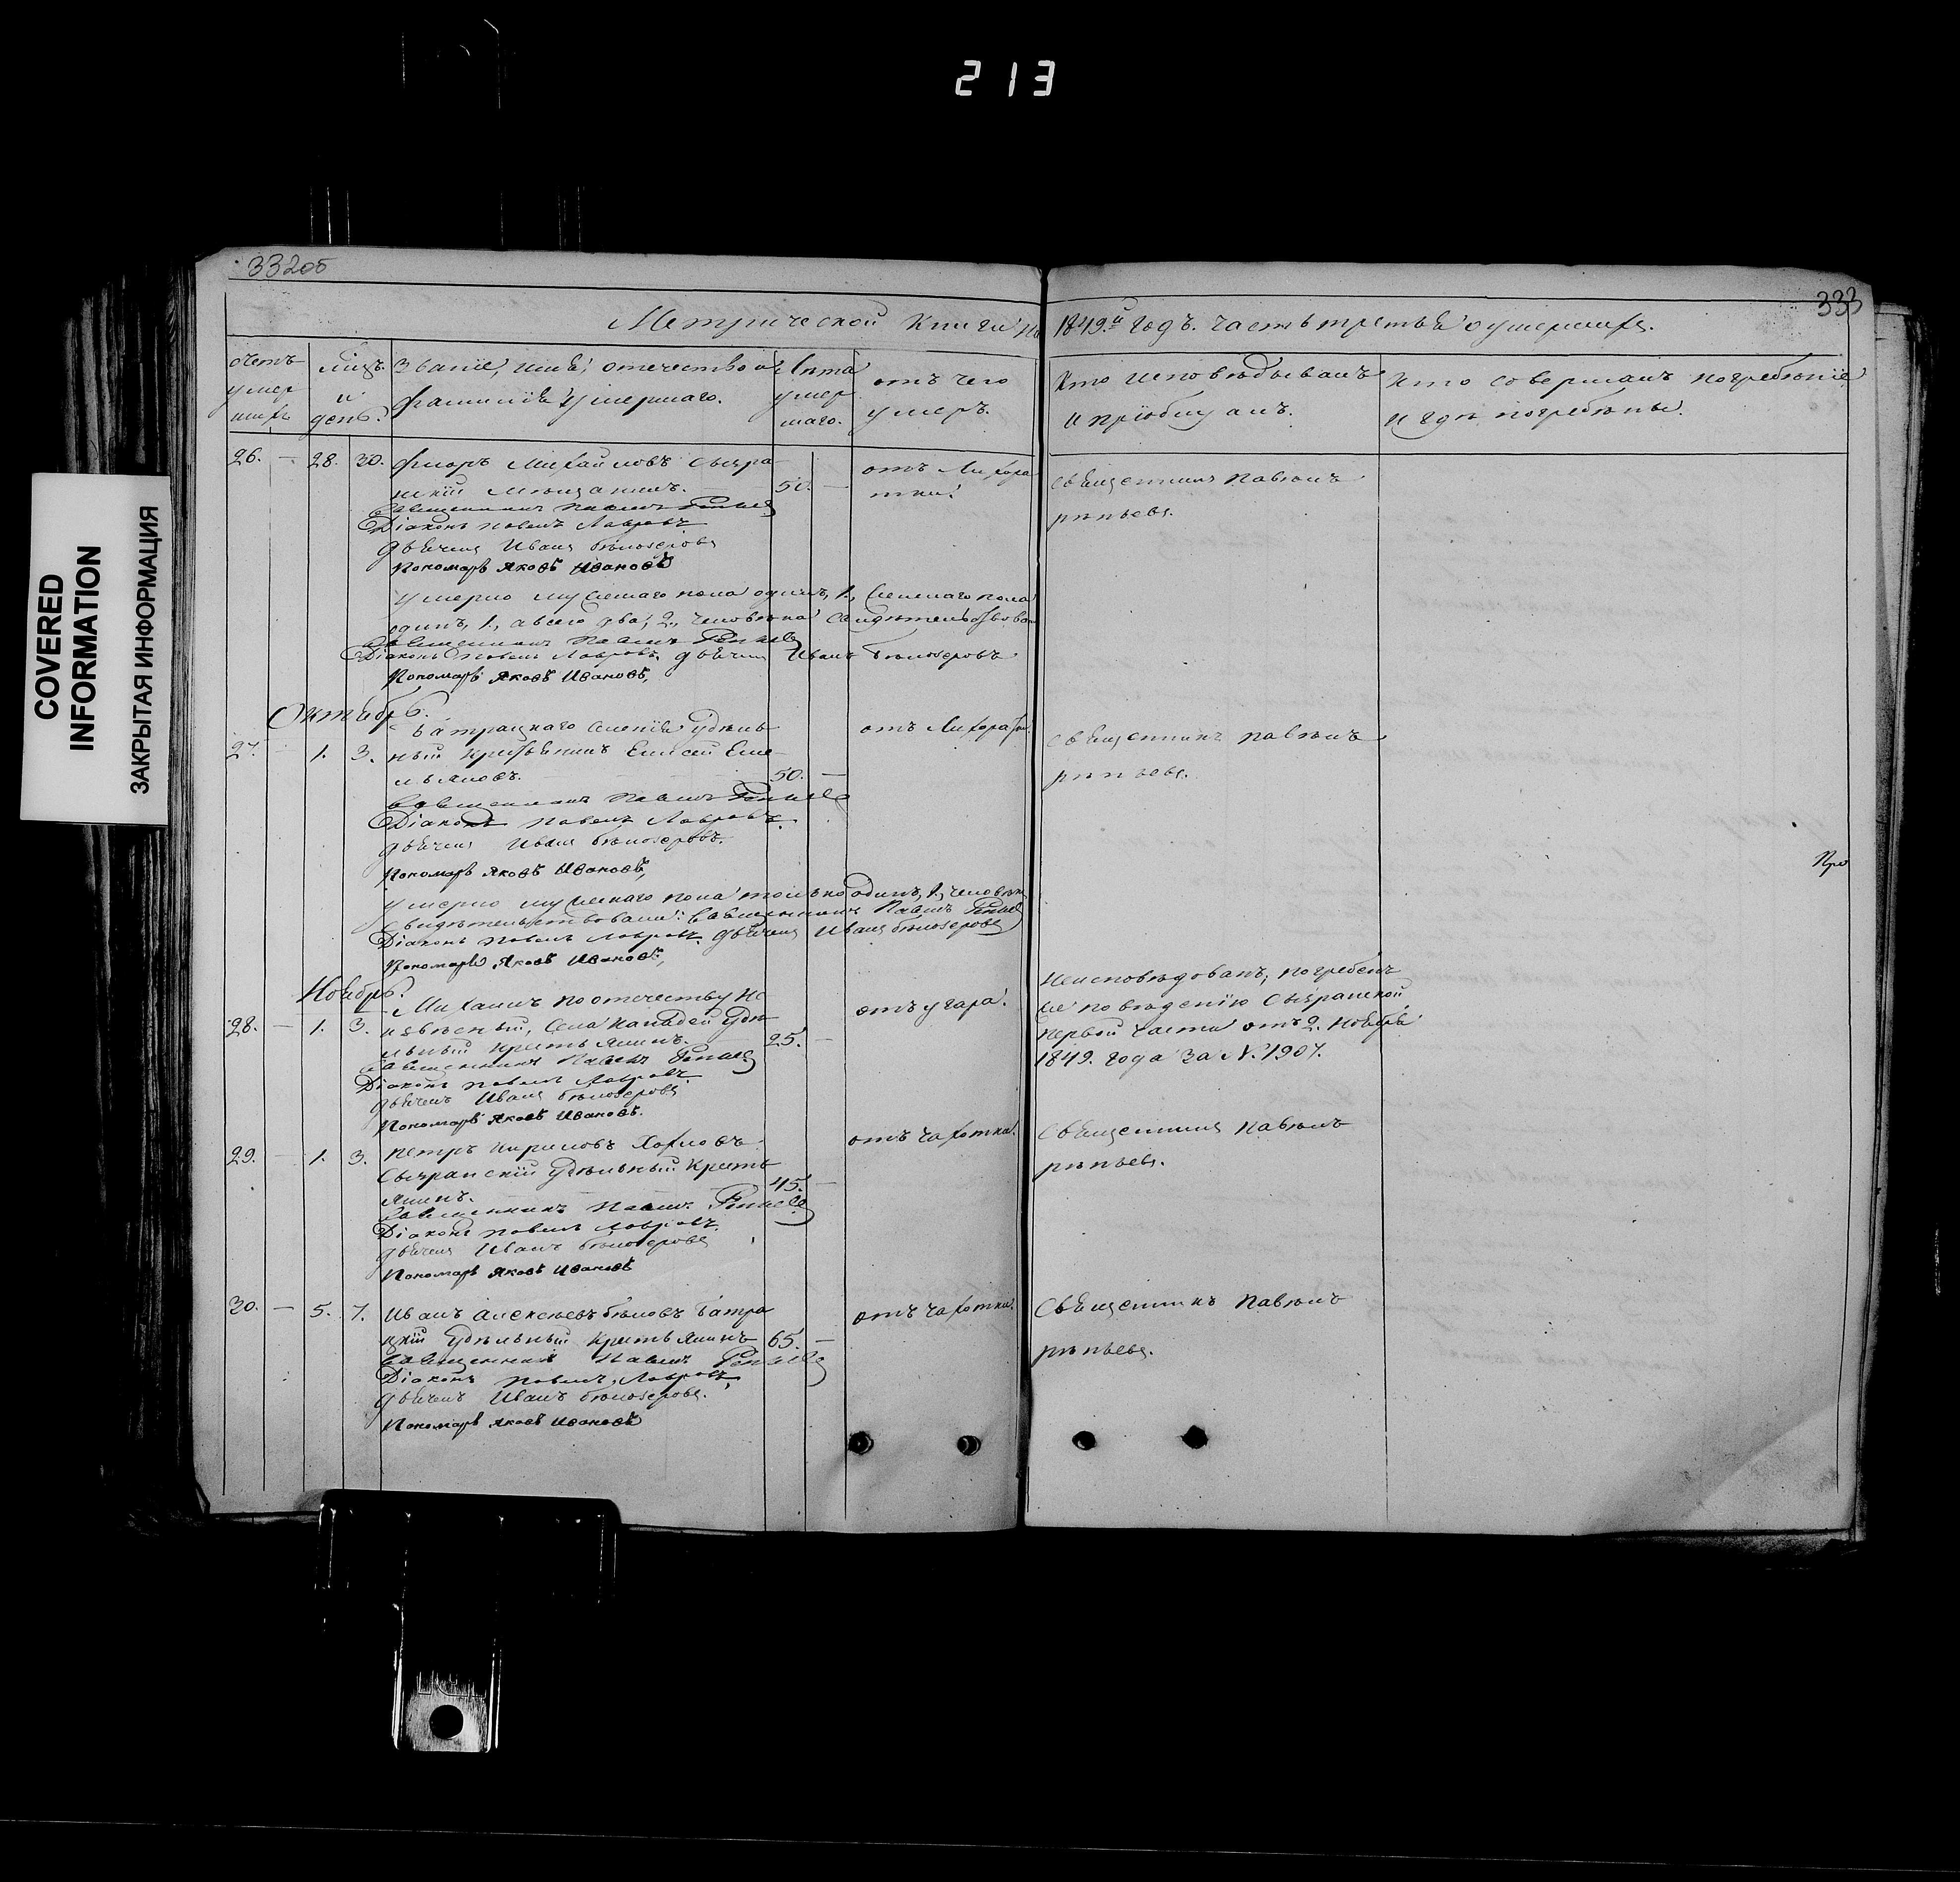 213
COVERED
INFORMATION
ЗАКРЫТАЯ ИНФОРМАЦИЯ
332об
333
Метрической Книги на 1849й Годъ. Часть третья о умершихъ.
счетъ умер шихъ
мѣцъ и день.
Званіе, имя, отечество и фамилія умершаго.
Лѣта умер шаго.
отъ чего умеръ.
Кто исповѣдывалъ и пріобщалъ.
Кто совершалъ погребѣніе и гдѣ погребѣны.
26. — 28. 30. Флоръ Михайловъ Сызра
нскій мѣщанинъ. 50. —
отъ Лихора
тки.
Священникъ Павѣлъ
рѣпьевъ.
Священникъ Павелъ Репьевъ
Діаконъ Павелъ Лавровъ
дьячекъ Иванъ бѣлозеровъ
Пономарь Яковъ Ивановъ
умерло мужескаго пола одинъ, 1, женскаго пола
одинъ, 1, а всего два, 2, человѣка Свидѣтельствова
Священникъ Павелъ Репьевъ
Діаконъ Павелъ Лавровъ, дьячекъ Иванъ бѣлозеровъ
Пономарь Яковъ Ивановъ,
Октябрь.
27. 1. 3. батрацкаго селенія удѣль
ный крестьянинъ Елисей Еме
льяновъ. 50. —
отъ Лихоратки.
Священникъ Павѣлъ
рѣпьевъ.
Священникъ Павелъ Репьевъ
Діаконъ Павелъ Лавровъ.
дьячекъ Иванъ бѣлозеровъ.
Пономарь Яковъ Ивановъ,
Про
умерло мужескаго пола только одинъ, 1, человѣкъ
свидѣтельствовали: Священникъ Павелъ Репьевъ
Діаконъ Павелъ Лавровъ. дьячекъ Иванъ бѣлозеровъ
Пономарь Яковъ Ивановъ,
Ноябрь.
28. — 1. 3. Михаилъ по отечеству не
извѣсный, села Канадей удѣ
льный крестьянинъ. 25. —
отъ угара.
Неисповѣдованъ, погребенъ
же по вѣденію Сызранской
первой части отъ 2. Ноября
1849. года за №. 1907.
Священникъ Павелъ Репьевъ
Діаконъ Павелъ Лавровъ.
дьячекъ Иванъ бѣлозеровъ
Пономарь Яковъ Ивановъ.
29. — 1. 3. Петръ Кириловъ
Сызранскій удѣльный крестъ
янинъ. 45. —
отъ чахотки.
Священникъ Павѣлъ
рѣпьевъ.
Священникъ Павелъ Репьевъ
Діаконъ Павелъ Лавровъ.
дьячекъ Иванъ бѣлозеровъ
Пономарь Яковъ Ивановъ
30. — 5. 7. Иванъ Алексѣевъ бѣловъ батра
цкій удѣльный крестьянинъ 65. —
отъ чахотки.
Священникъ Павѣлъ
рѣпьевъ.
Священникъ Павелъ Репьевъ
Діаконъ Павелъ Лавровъ,
дьячекъ Иванъ бѣлозеровъ.
Пономарь Яковъ Ивановъ